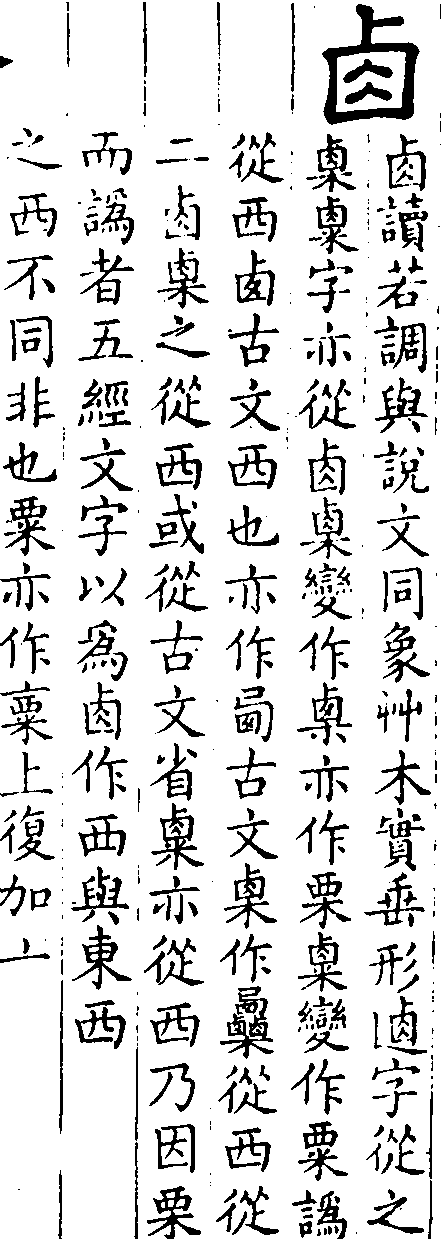 𠧪
卥讀若調與說文同象艸木實垂形𠧴字從之
㮚𥻆字亦從卥㮚變作㮚亦作栗𥻆變作粟譌
從西卥古文西也亦作古文㮚作從西從
二卥㮚之從西或從古文省𥻆亦從西乃因栗
而譌者五經文字以爲卥作西與東西
之西不同非也粟亦作上復加亠